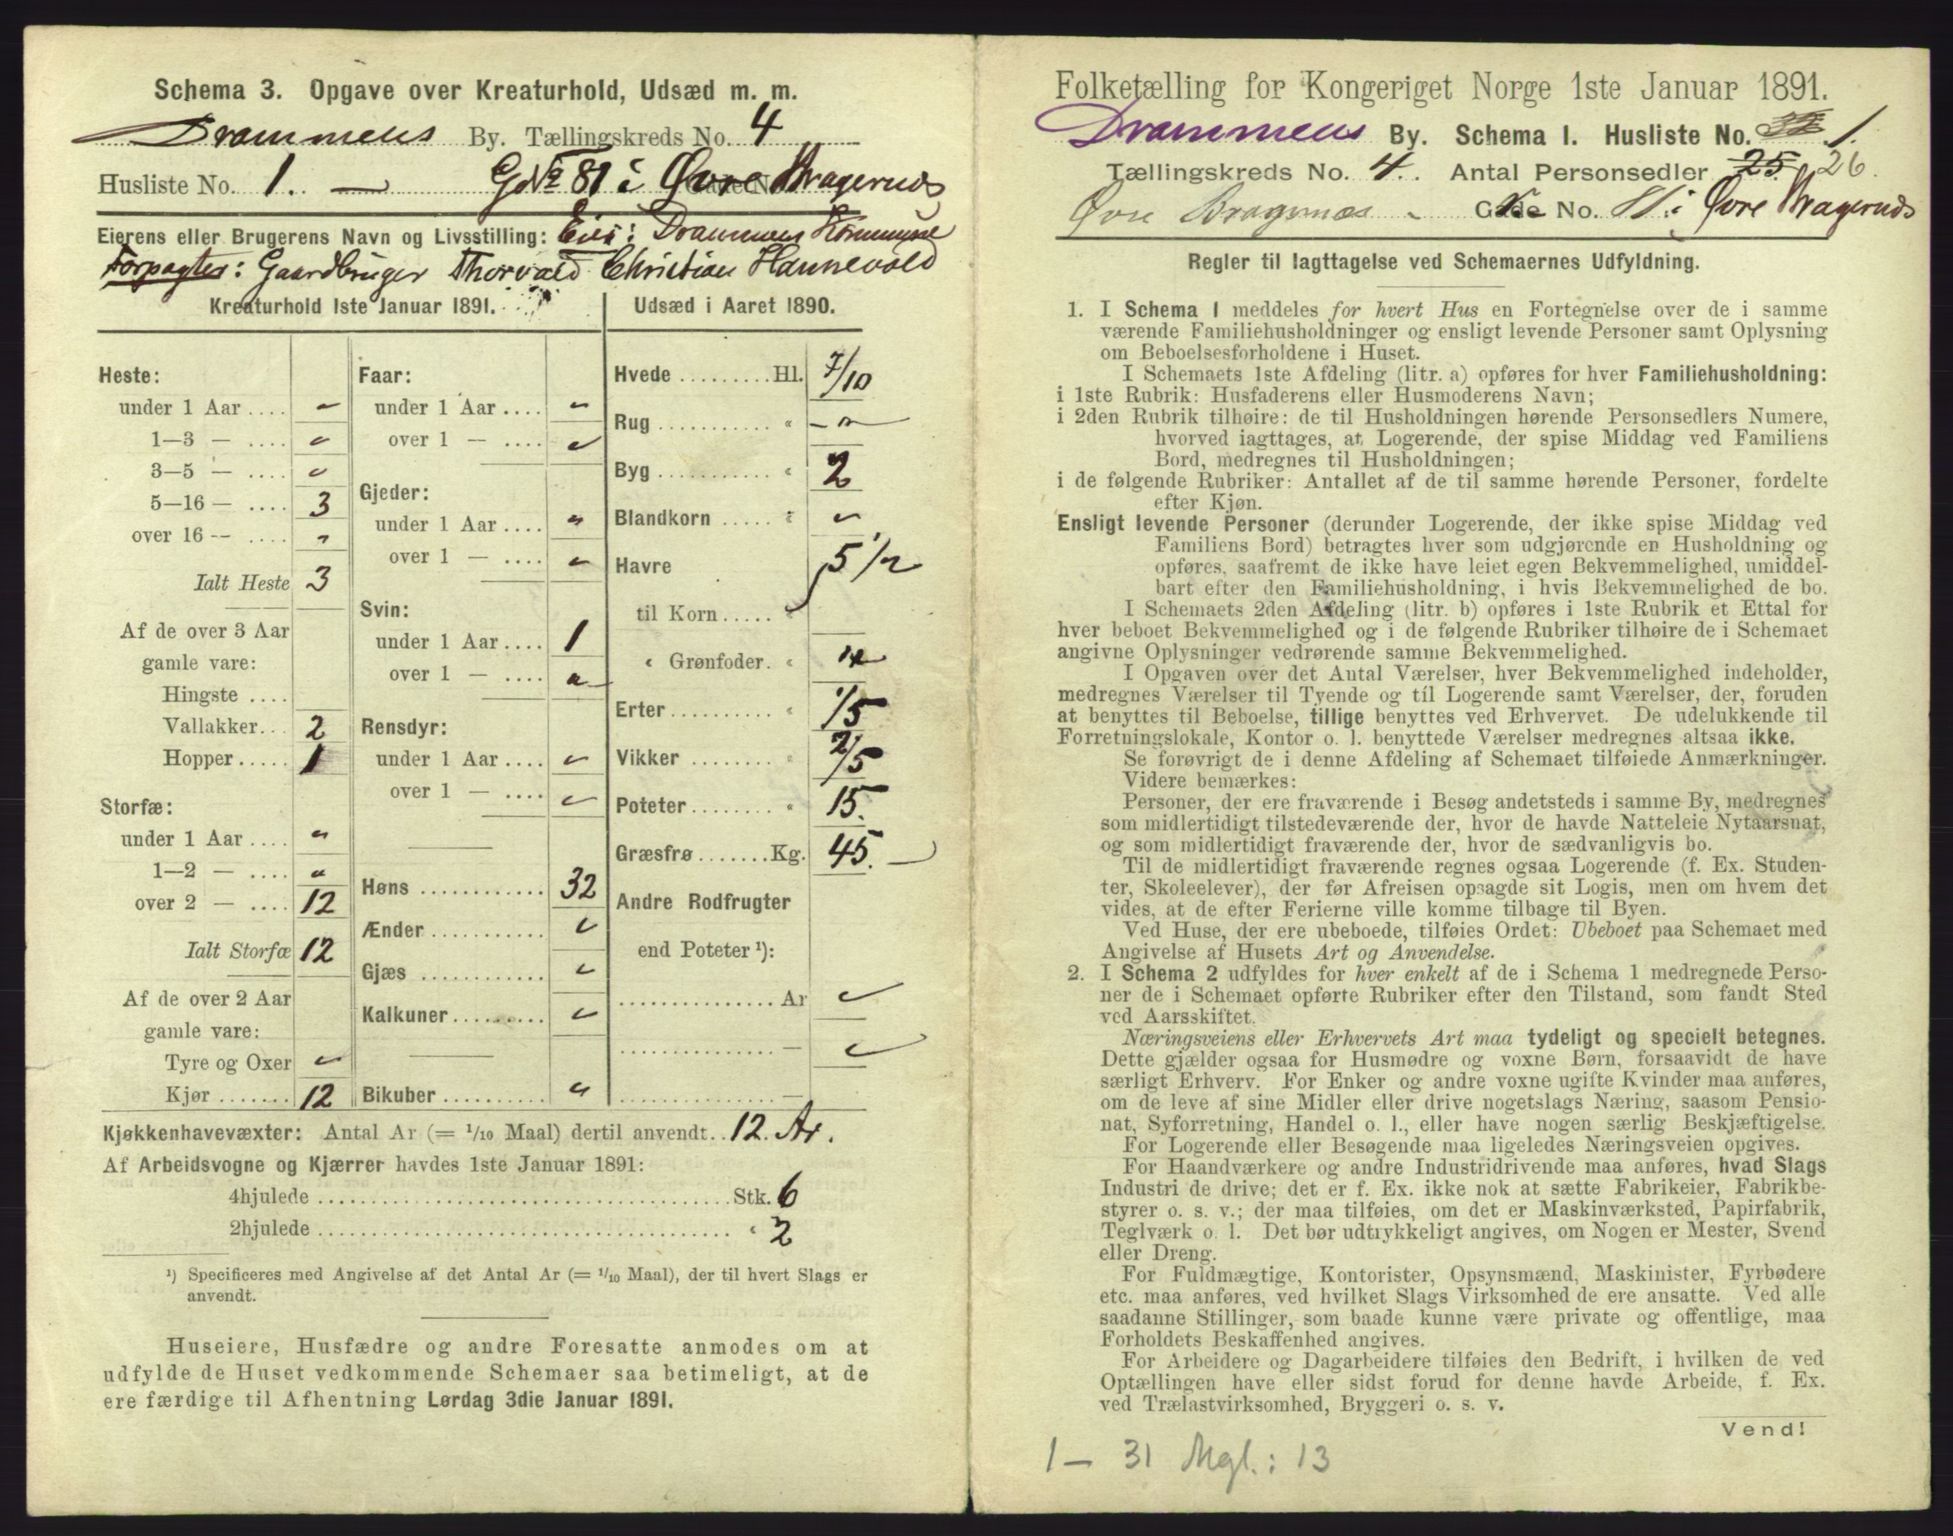 Schema 3. Opgave over Kreaturhold, Udsæd m. m.
Drammens By. Tællingskreds No. 4
Husliste No. 1. — G. No 81 i Øvre Bragernæs
Eierens eller Brugerens Navn og Livsstilling: Eier: Drammens Kommune
Forpagter: Gaardbruger Thorvald Christian Hannevold
Kreaturhold 1ste Januar 1891.
Heste:
under 1 Aar .... „
1—3 — .... „
3—5 — .... „
5—16 — .... 3
over 16 — .... „
Ialt Heste 3
Af de over 3 Aar
gamle vare:
Hingste ....
Vallakker... 2
Hopper ..... 1
Storfæ:
under 1 Aar .... „
1—2 — .... „
over 2 — .... 12
Ialt Storfæ 12
Af de over 2 Aar
gamle vare:
Tyre og Oxer „
Kjør ....... 12
Faar:
under 1 Aar .... „
over 1 — .... „
Gjeder:
under 1 Aar .... „
over 1 — .... „
Svin:
under 1 Aar .... 1
over 1 — .... „
Rensdyr:
under 1 Aar .... „
over 1 — .... „
Høns ............ 32
Ænder ........... „
Gjæs ............ „
Kalkuner ......... „
Bikuber .......... „
Udsæd i Aaret 1890.
Hvede ......... Hl. 7/10
Rug ........... „ „
Byg ........... „ 2
Blandkorn ..... „ „
Havre 5 1/2
til Korn ..... „
„ Grønfoder. „ „
Erter .......... „ 1/5
Vikker ......... „ 2/5
Poteter ........ „ 15.
Græsfrø ....... Kg. 45.
Andre Rodfrugter
end Poteter ¹):
............... Ar „
............... — „
............... —
Kjøkkenhavevæxter: Antal Ar (= 1/10 Maal) dertil anvendt.. 12. Ar.
Af Arbeidsvogne og Kjærrer havdes 1ste Januar 1891:
4hjulede ........................................ Stk. 6
2hjulede ........................................ „ 2
¹) Specificeres med Angivelse af det Antal Ar (= 1/10 Maal), der til hvert Slags er
anvendt.
Huseiere, Husfædre og andre Foresatte anmodes om at
udfylde de Huset vedkommende Schemaer saa betimeligt, at de
ere færdige til Afhentning Lørdag 3die Januar 1891.
Folketælling for Kongeriget Norge 1ste Januar 1891.
Drammens By. Schema I. Husliste No. 1.
Tællingskreds No. 4. Antal Personsedler 25. 26.
Øvre Bragernæs Gade No. 81 i Øvre Bragernæs
Regler til Iagttagelse ved Schemaernes Udfyldning.
1. I Schema 1 meddeles for hvert Hus en Fortegnelse over de i samme
værende Familiehusholdninger og ensligt levende Personer samt Oplysning
om Beboelsesforholdene i Huset.
I Schemaets 1ste Afdeling (litr. a) opføres for hver Familiehusholdning:
i 1ste Rubrik: Husfaderens eller Husmoderens Navn;
i 2den Rubrik tilhøire: de til Husholdningen hørende Personsedlers Numere,
hvorved iagttages, at Logerende, der spise Middag ved Familiens
Bord, medregnes til Husholdningen;
i de følgende Rubriker: Antallet af de til samme hørende Personer, fordelte
efter Kjøn.
Ensligt levende Personer (derunder Logerende, der ikke spise Middag ved
Familiens Bord) betragtes hver som udgjørende en Husholdning og
opføres, saafremt de ikke have leiet egen Bekvemmelighed, umiddel-
bart efter den Familiehusholdning, i hvis Bekvemmelighed de bo.
I Schemaets 2den Afdeling (litr. b) opføres i 1ste Rubrik et Ettal for
hver beboet Bekvemmelighed og i de følgende Rubriker tilhøire de i Schemaet
angivne Oplysninger vedrørende samme Bekvemmelighed.
I Opgaven over det Antal Værelser, hver Bekvemmelighed indeholder,
medregnes Værelser til Tyende og til Logerende samt Værelser, der, foruden
at benyttes til Beboelse, tillige benyttes ved Erhvervet. De udelukkende til
Forretningslokale, Kontor o. l. benyttede Værelser medregnes altsaa ikke.
Se forøvrigt de i denne Afdeling af Schemaet tilføiede Anmærkninger.
Videre bemærkes:
Personer, der ere fraværende i Besøg andetsteds i samme By, medregnes
som midlertidigt tilstedeværende der, hvor de havde Natteleie Nytaarsnat,
og som midlertidigt fraværende der, hvor de sædvanligvis bo.
Til de midlertidigt fraværende regnes ogsaa Logerende (f. Ex. Studen-
ter, Skoleelever), der før Afreisen opsagde sit Logis, men om hvem det
vides, at de efter Ferierne ville komme tilbage til Byen.
Ved Huse, der ere ubeboede, tilføies Ordet: Ubeboet paa Schemaet med
Angivelse af Husets Art og Anvendelse.
2. I Schema 2 udfyldes for hver enkelt af de i Schema 1 medregnede Perso-
ner de i Schemaet opførte Rubriker efter den Tilstand, som fandt Sted
ved Aarsskiftet.
Næringsveiens eller Erhvervets Art maa tydeligt og specielt betegnes.
Dette gjælder ogsaa for Husmødre og voxne Børn, forsaavidt de have
særligt Erhverv. For Enker og andre voxne ugifte Kvinder maa anføres,
om de leve af sine Midler eller drive nogetslags Næring, saasom Pensio-
nat, Syforretning, Handel o. l., eller have nogen særlig Beskjæftigelse.
For Logerende eller Besøgende maa ligeledes Næringsveien opgives.
For Haandværkere og andre Industridrivende maa anføres, hvad Slags
Industri de drive; det er f. Ex. ikke nok at sætte Fabrikeier, Fabrikbe-
styrer o. s. v.; der maa tilføies, om det er Maskinværksted, Papirfabrik,
Teglværk o. l. Det bør udtrykkeligt angives, om Nogen er Mester, Svend
eller Dreng.
For Fuldmægtige, Kontorister, Opsynsmænd, Maskinister, Fyrbødere
etc. maa anføres, ved hvilket Slags Virksomhed de ere ansatte. Ved alle
saadanne Stillinger, som baade kunne være private og offentlige, maa
Forholdets Beskaffenhed angives.
For Arbeidere og Dagarbeidere tilføies den Bedrift, i hvilken de ved
Optællingen have eller sidst forud for denne havde Arbeide, f. Ex.
ved Trælastvirksomhed, Bryggeri o. s. v.
Vend!
1 — 31 Mgl.: 13